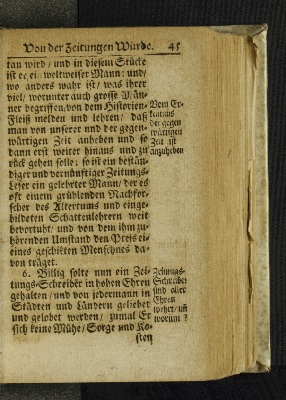 Von der Zeitungen Würde. 45
tan wird / und in diesem Stücke
ist er ei weltweiser Mann: und/
wo anders wahr ist / was ihrer
viel/ worunter auch grosse Män-
ner begriffen, von dem Historien-
Fleiß melden und lehren/ daß
man von unserer und der gegen-
wärtigen Zeit anheben und so
dann erst weiter hinaus und zu
rück gehen solle; so ist ein bestän-
diger und vernünftiger Zeitungs-
Leser ein gelehrter Mann/ der es
oft einem grüblenden Nachfor-
scher des Altertums und einge-
bildeten Schattenlehrern weit
bevortuht/ und von dem ihm zu-
hörenden Umstand den Preis ei-
eines geschickten Menschens da-
von träget.
6. Billig solte nun ein Zei-
tungs-Schreiber in hohen Ehren
gehalten / und von jedermann in
Städten und Ländern geliebet
und gelobet werden / zumal Er
sich keine Mühe / Sorge und Ko-
sten
Vom Er-
käntnis
der gegen
wärtigen
Zeit ist
anzuheben
Zeitungs-
Schreiber
sind aller
Ehren
wehrt/ uñ
worum ?